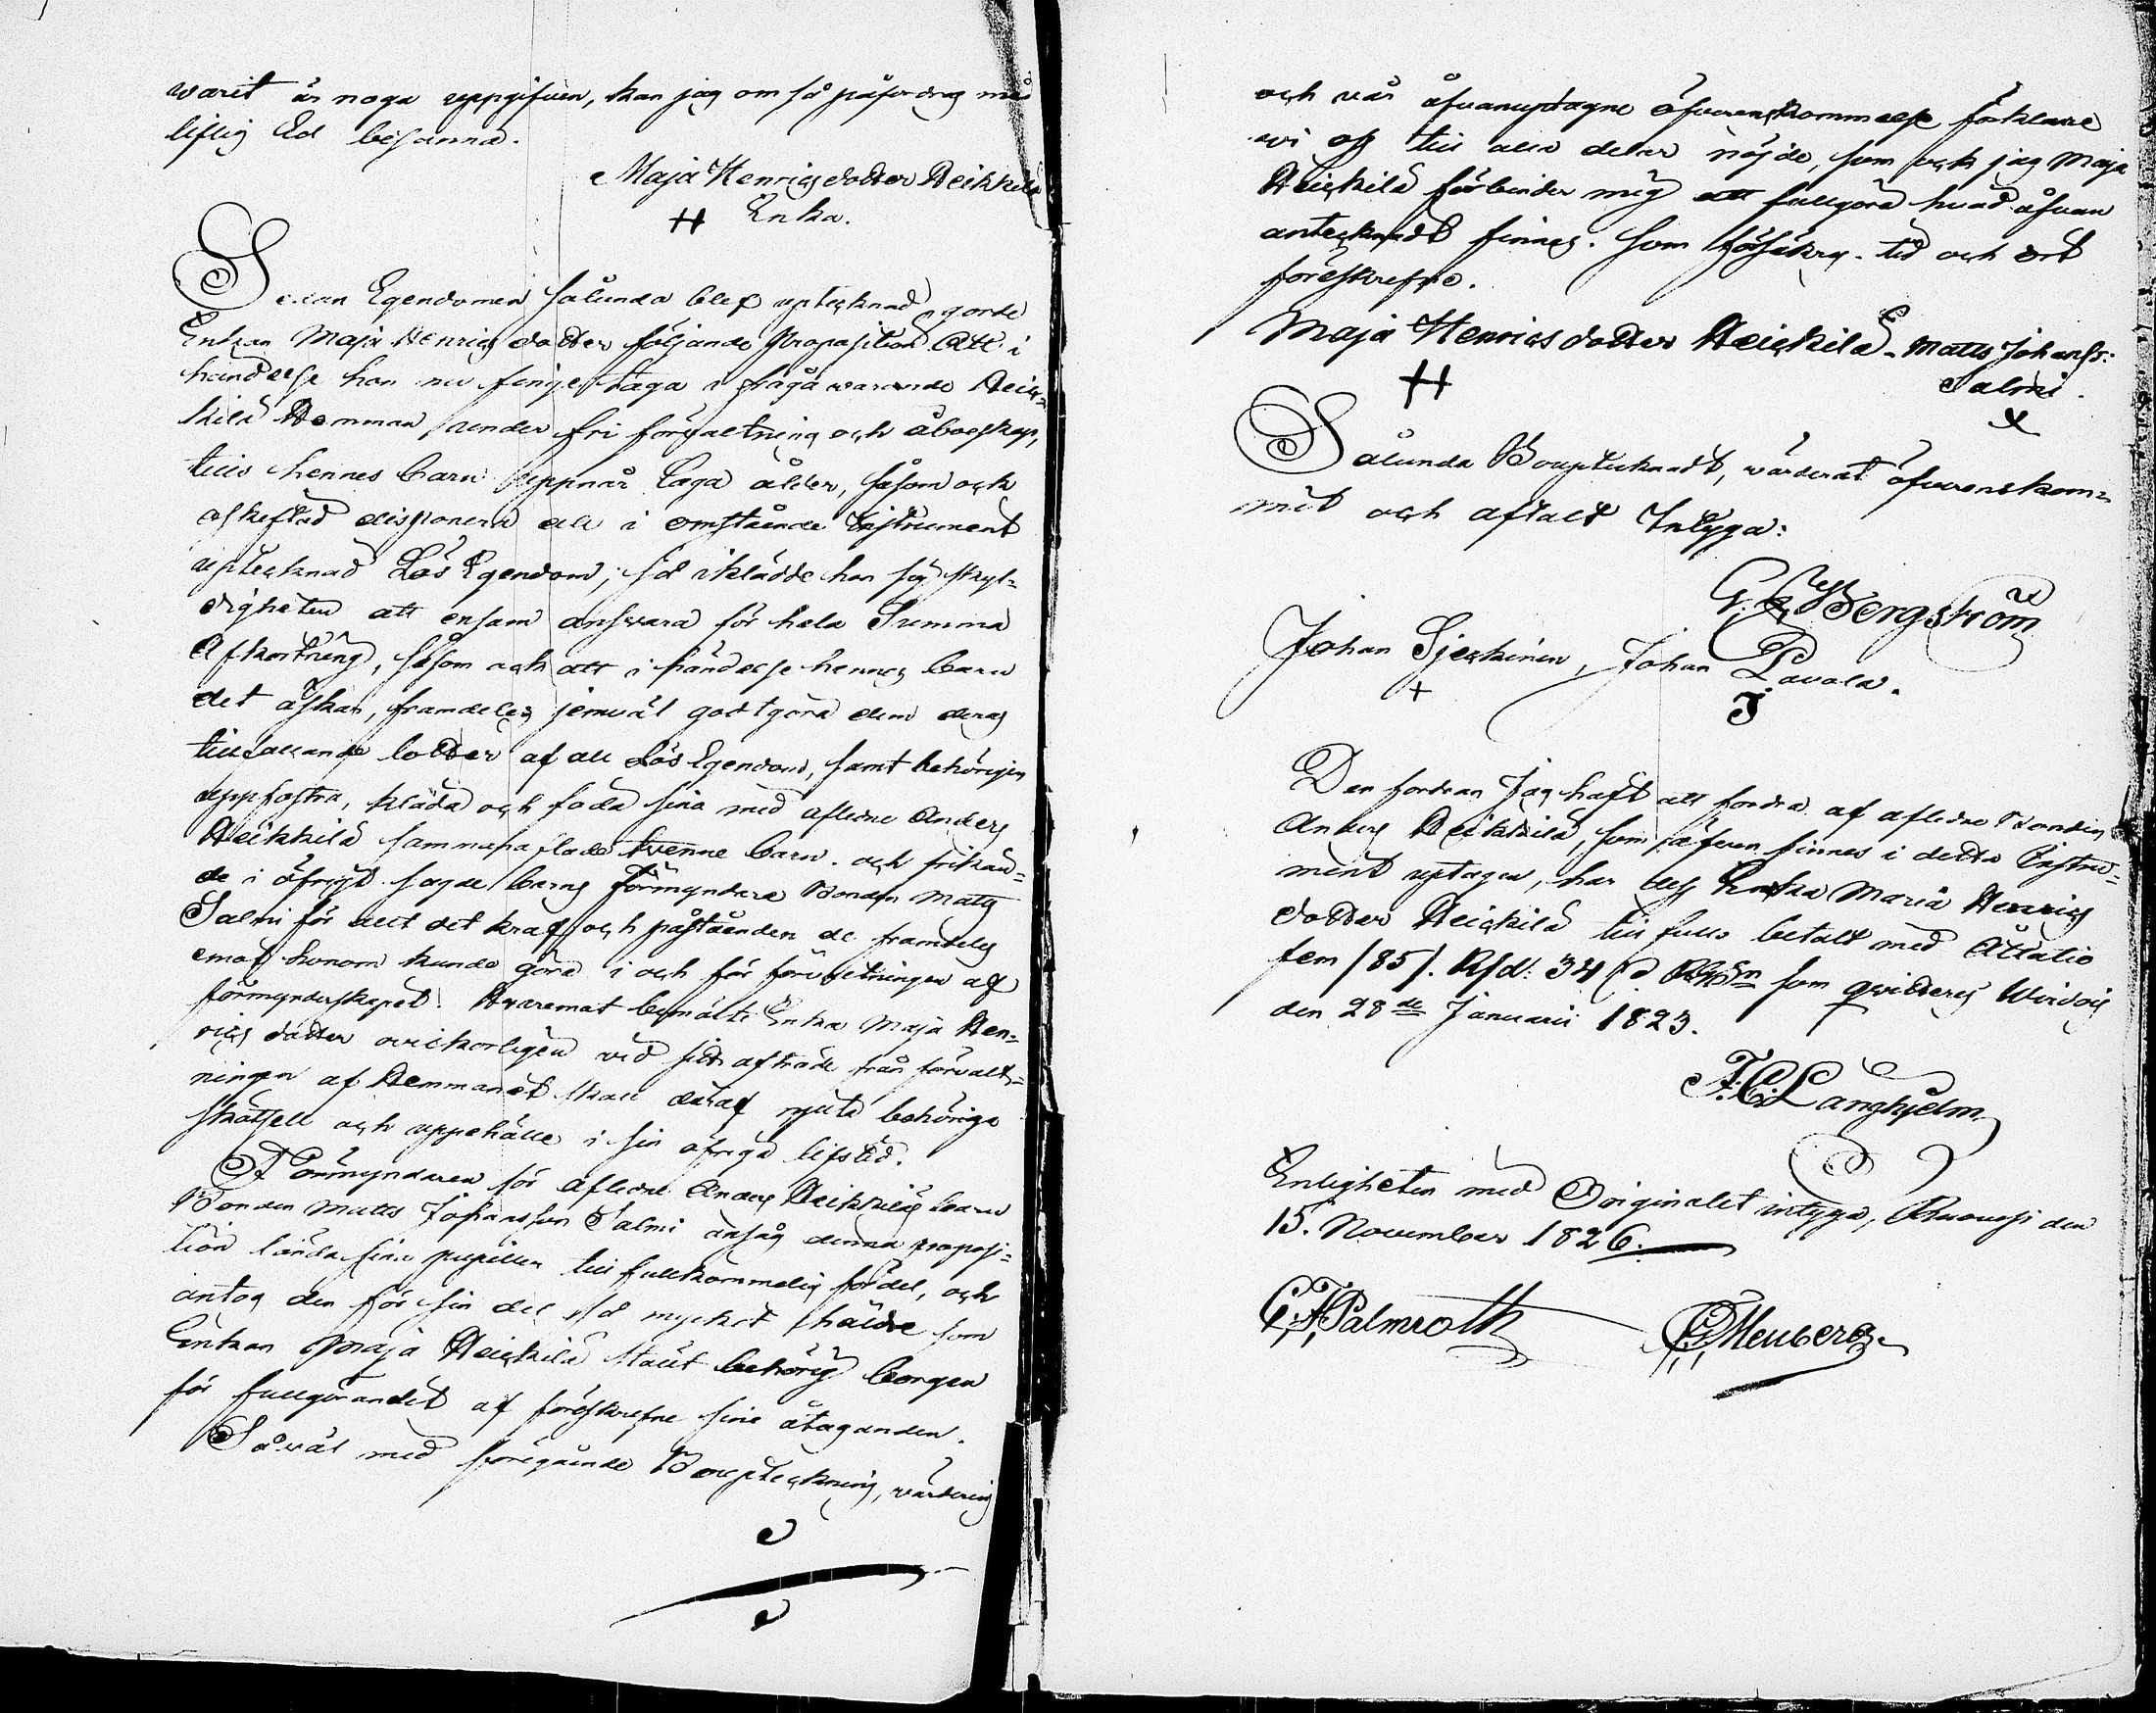 warit är noga uppgifven, kan jag om så påfordras med
liflig Ed besanna.
Maja Henrics dotter Heikkilä
H Enka.
Sedan Egendomen sålunda blef uptecknad, gorde
Enkan Maja Henrics dotter följande Proposition Att i
händelse hon nu finge taga i fråga warande Heic=
kilä Hemman, under fri förvaltning och åboeskap,
tills hennes barn uppnår Laga ålder, såsom och
oskiftad disponera all i omstående Instrument
uptecknad Lös Egendom; så iklädde hon sig skyl=
digheten att ensam answara för hela Summa
Afkortning, såsom och att i händelse hennes barn
det äskar, framdeles jemväl godtgöra dem deras
tillfallande lotter af all Lös Egendom, samt behörigen
uppfostra, kläda och föda sina med afledne Anders
Heikkilä sammanaflade twenne barn. och frikän=
de i öfrigt sagde barns Förmyndare Bonden Matts
Salmi för allt det kraf och påståenden de framdeles
emot honom kunde göra i och för förvaltningen af
förmynderskapet. Hvaremot bemälte Enka Maja Hen=
rics dotter ovilkorligen vid sitt afträde från förvalt=
ningen af Hemmanet skall däraf njuta behöriga
skötsell och uppehälle i sin öfriga lifstid.
Förmyndaren för aflidne Anders Heikkiläs barn
Bonden Matts Johansson Salmi ansåg denna proposi=
tion lända sina pupiller till fullkommelig fördel, och
antog den för sin del så mycket häldre som
Enkan Maja Heickilä stält behörig borgen
för fullgörandet af föreskrefne sine åtaganden.
Såwäl med föregående Boupteckning, värdering
och vår åfvanuptagne öfverenskommelse förklare
wi oss till alla delar nöjde, som och jag Maja
Heickilä förbinder mig att fullgöra hvad åfvan
antecknadt finnes. Som försäkras. tid och ort
föreskrefne.
Maja Henrics dotter Heickilä. Matts Johanss:
H Salmi.
X
Sålunda Bouptecknadt, värderat öfverenskom=
mit och aftalt Intyga:
Bergström
Johan Sjeckinen, Johan Pavola.
+ J
Den fordran Jag haft att fordra af aflidne Bonden
Anders Heikkilä, som äfven finnes i detta Instru=
ment uptagen, har dess Enka Maria Henrics
dotter Heickilä till fullo betalt med Åttatio
fem /85/. Rsd: 34 som qvitteras Wirdois
den 28de Januarii 1823.
Langhjelm
Enligheten med Originalet intyga, Ruovesi den
15. November 1826.
C F Palmroth Menberg